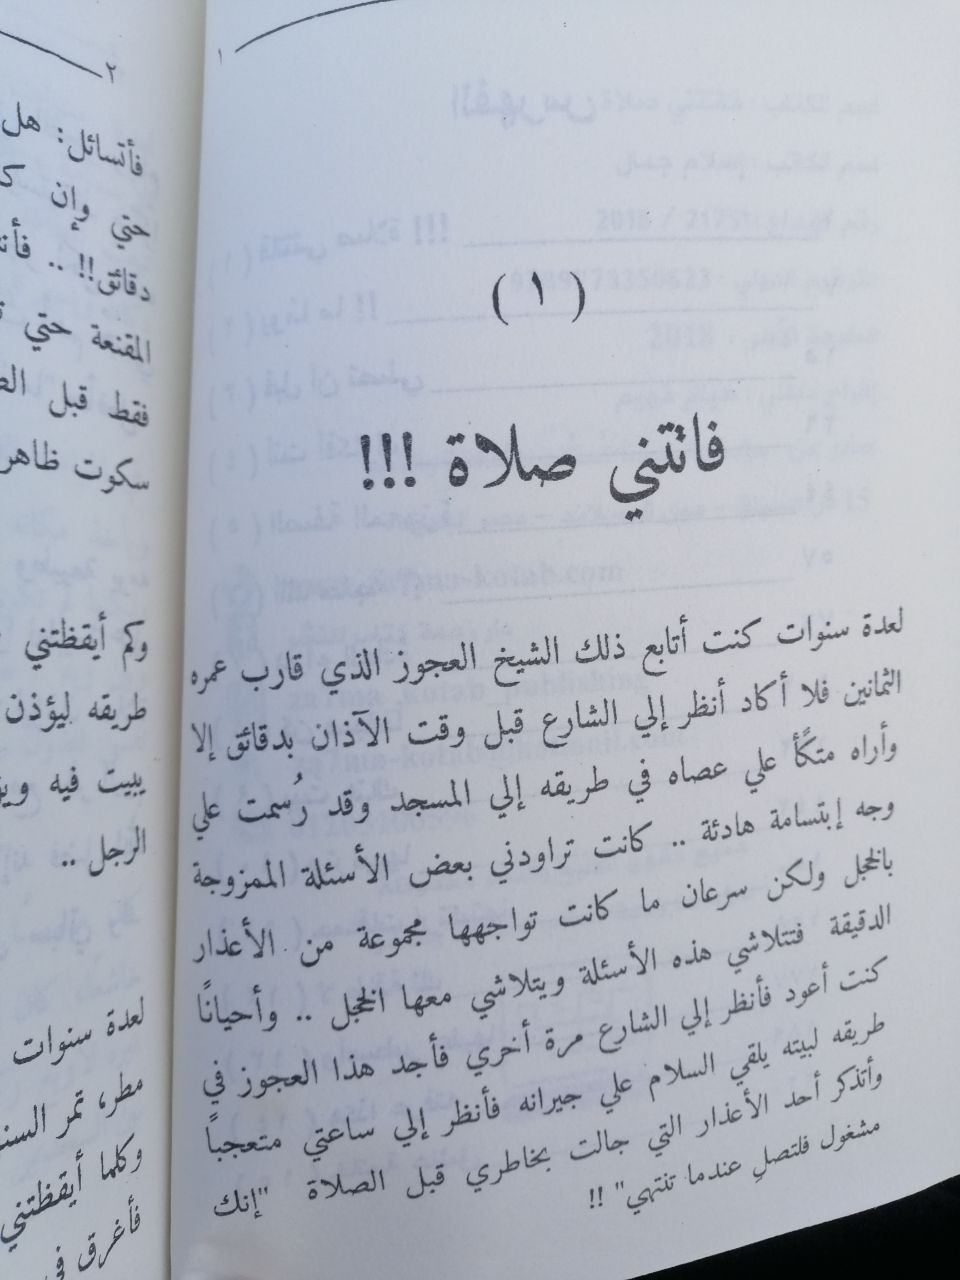 ١
(١)
فاتتني صلاة !!!
لعدة سنوات كنت أتابع ذلك الشيخ العجوز الذي قارب عمره
الثمانين فلا أكاد أنظر إلي الشارع قبل وقت الآذان بدقائق إلا
وأراه متكأً علي عصاه في طريقه إلي المسجد وقد رُسمت علي
وجه إبتسامة هادئة .. كانت تراودني بعض الأسئلة الممزوجة
بالخجل ولكن سرعان ما كانت تواجهها مجموعة من الأعذار
الدقيقة فتتلاشي هذه الأسئلة ويتلاشي معها الخجل .. وأحيانًا
كنت أعود فأنظر إلي الشارع مرة أخري فأجد هذا العجوز في
طريقه لبيته يلقي السلام علي جيرانه فأنظر إلي ساعتي متعجباً
وأتذكر أحد الأعذار التي جالت بخاطري قبل الصلاة "إنك
مشغول فلتصلِ عندما تنتهي" !!
٢
فأتسائل: هل
حتي وإن
دقائق!! ..
المقنعة حتي
فقط قبل
سكوت
وكم أيقظتني
طريقه ليؤذن
يبيت فيه
الرجل ..
لعدة سنوات
مطر، تمر
وكلما أيقظتني
فأغرق في